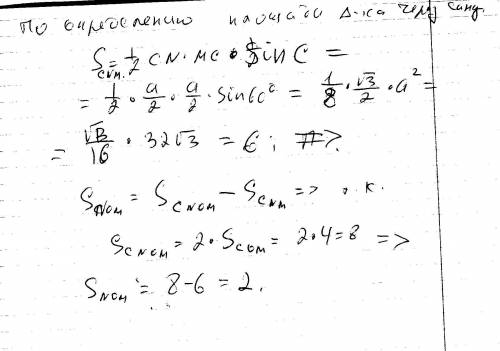 По определению площади Δ-ка через синус.
S_CNM = 1/2 CN · MC · sin C =
= 1/2 · a/2 · a/2 · sin 60° = 1/8 · √3/2 · a² =
= √3/16 · 32√3 = 6 ; =>
S_NOM = S_CNOM − S_CNM => т.к.
S_CNOM = 2 · S_COM = 2·4=8 =>
S_NOM = 8−6 = 2.